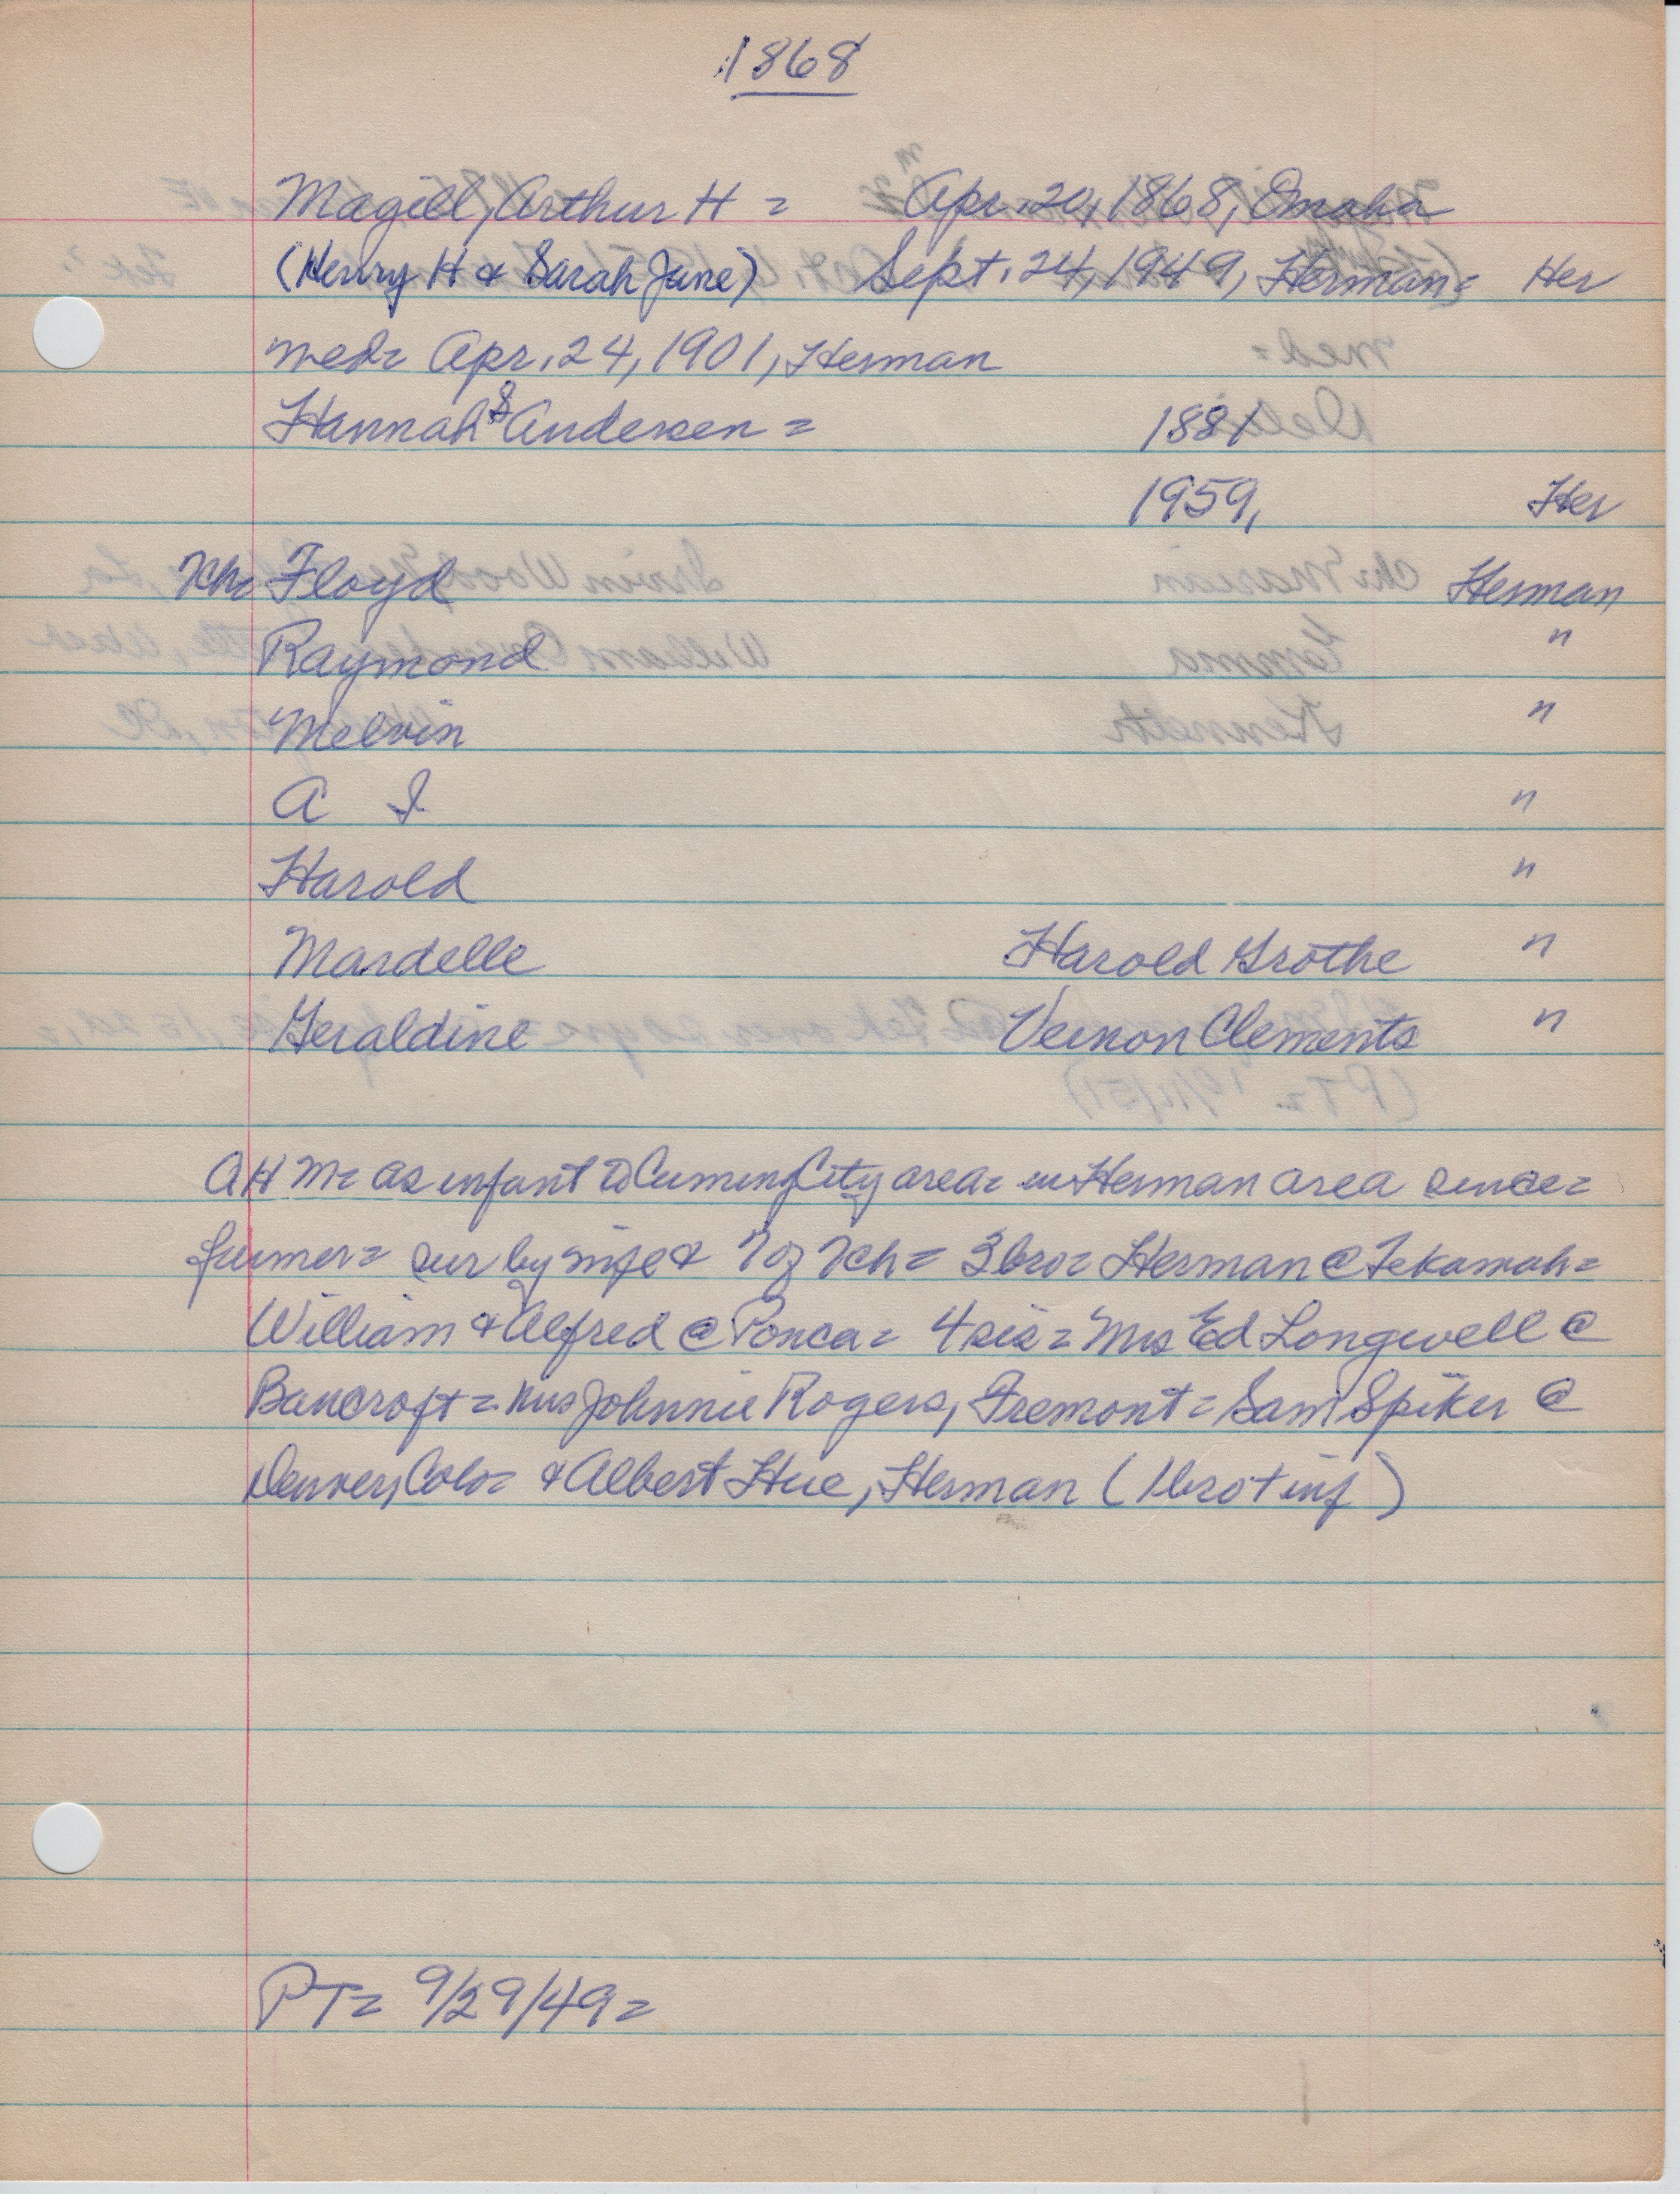 1868
Magill, Arthur H = Apr. 20, 1868, Omaha
(Henry H & Sarah Jane) Sept. 24, 1949, Herman = Her
med= Apr. 24, 1901, Herman
Hannah S Andersen = 1881
1959, Her
7ch= Floyd Herman
Raymond "
Melvin "
A I "
Harold "
Mardelle Harold Grothe "
Geraldine Vernon Clements "
AHM= as infant to Cuming City area= in Herman area since=
farmer= sur by wife & 7 of 7ch= 3bro= Herman @ Tekamah=
William & Alfred @ Ponca= 4sis= Mrs Ed Longwell @
Bancroft= Mrs Johnnie Rogers, Fremont= Sam Spiker @
Denver, Colo= & Albert Hue, Herman (1bro + inf)
PT= 9/29/49=